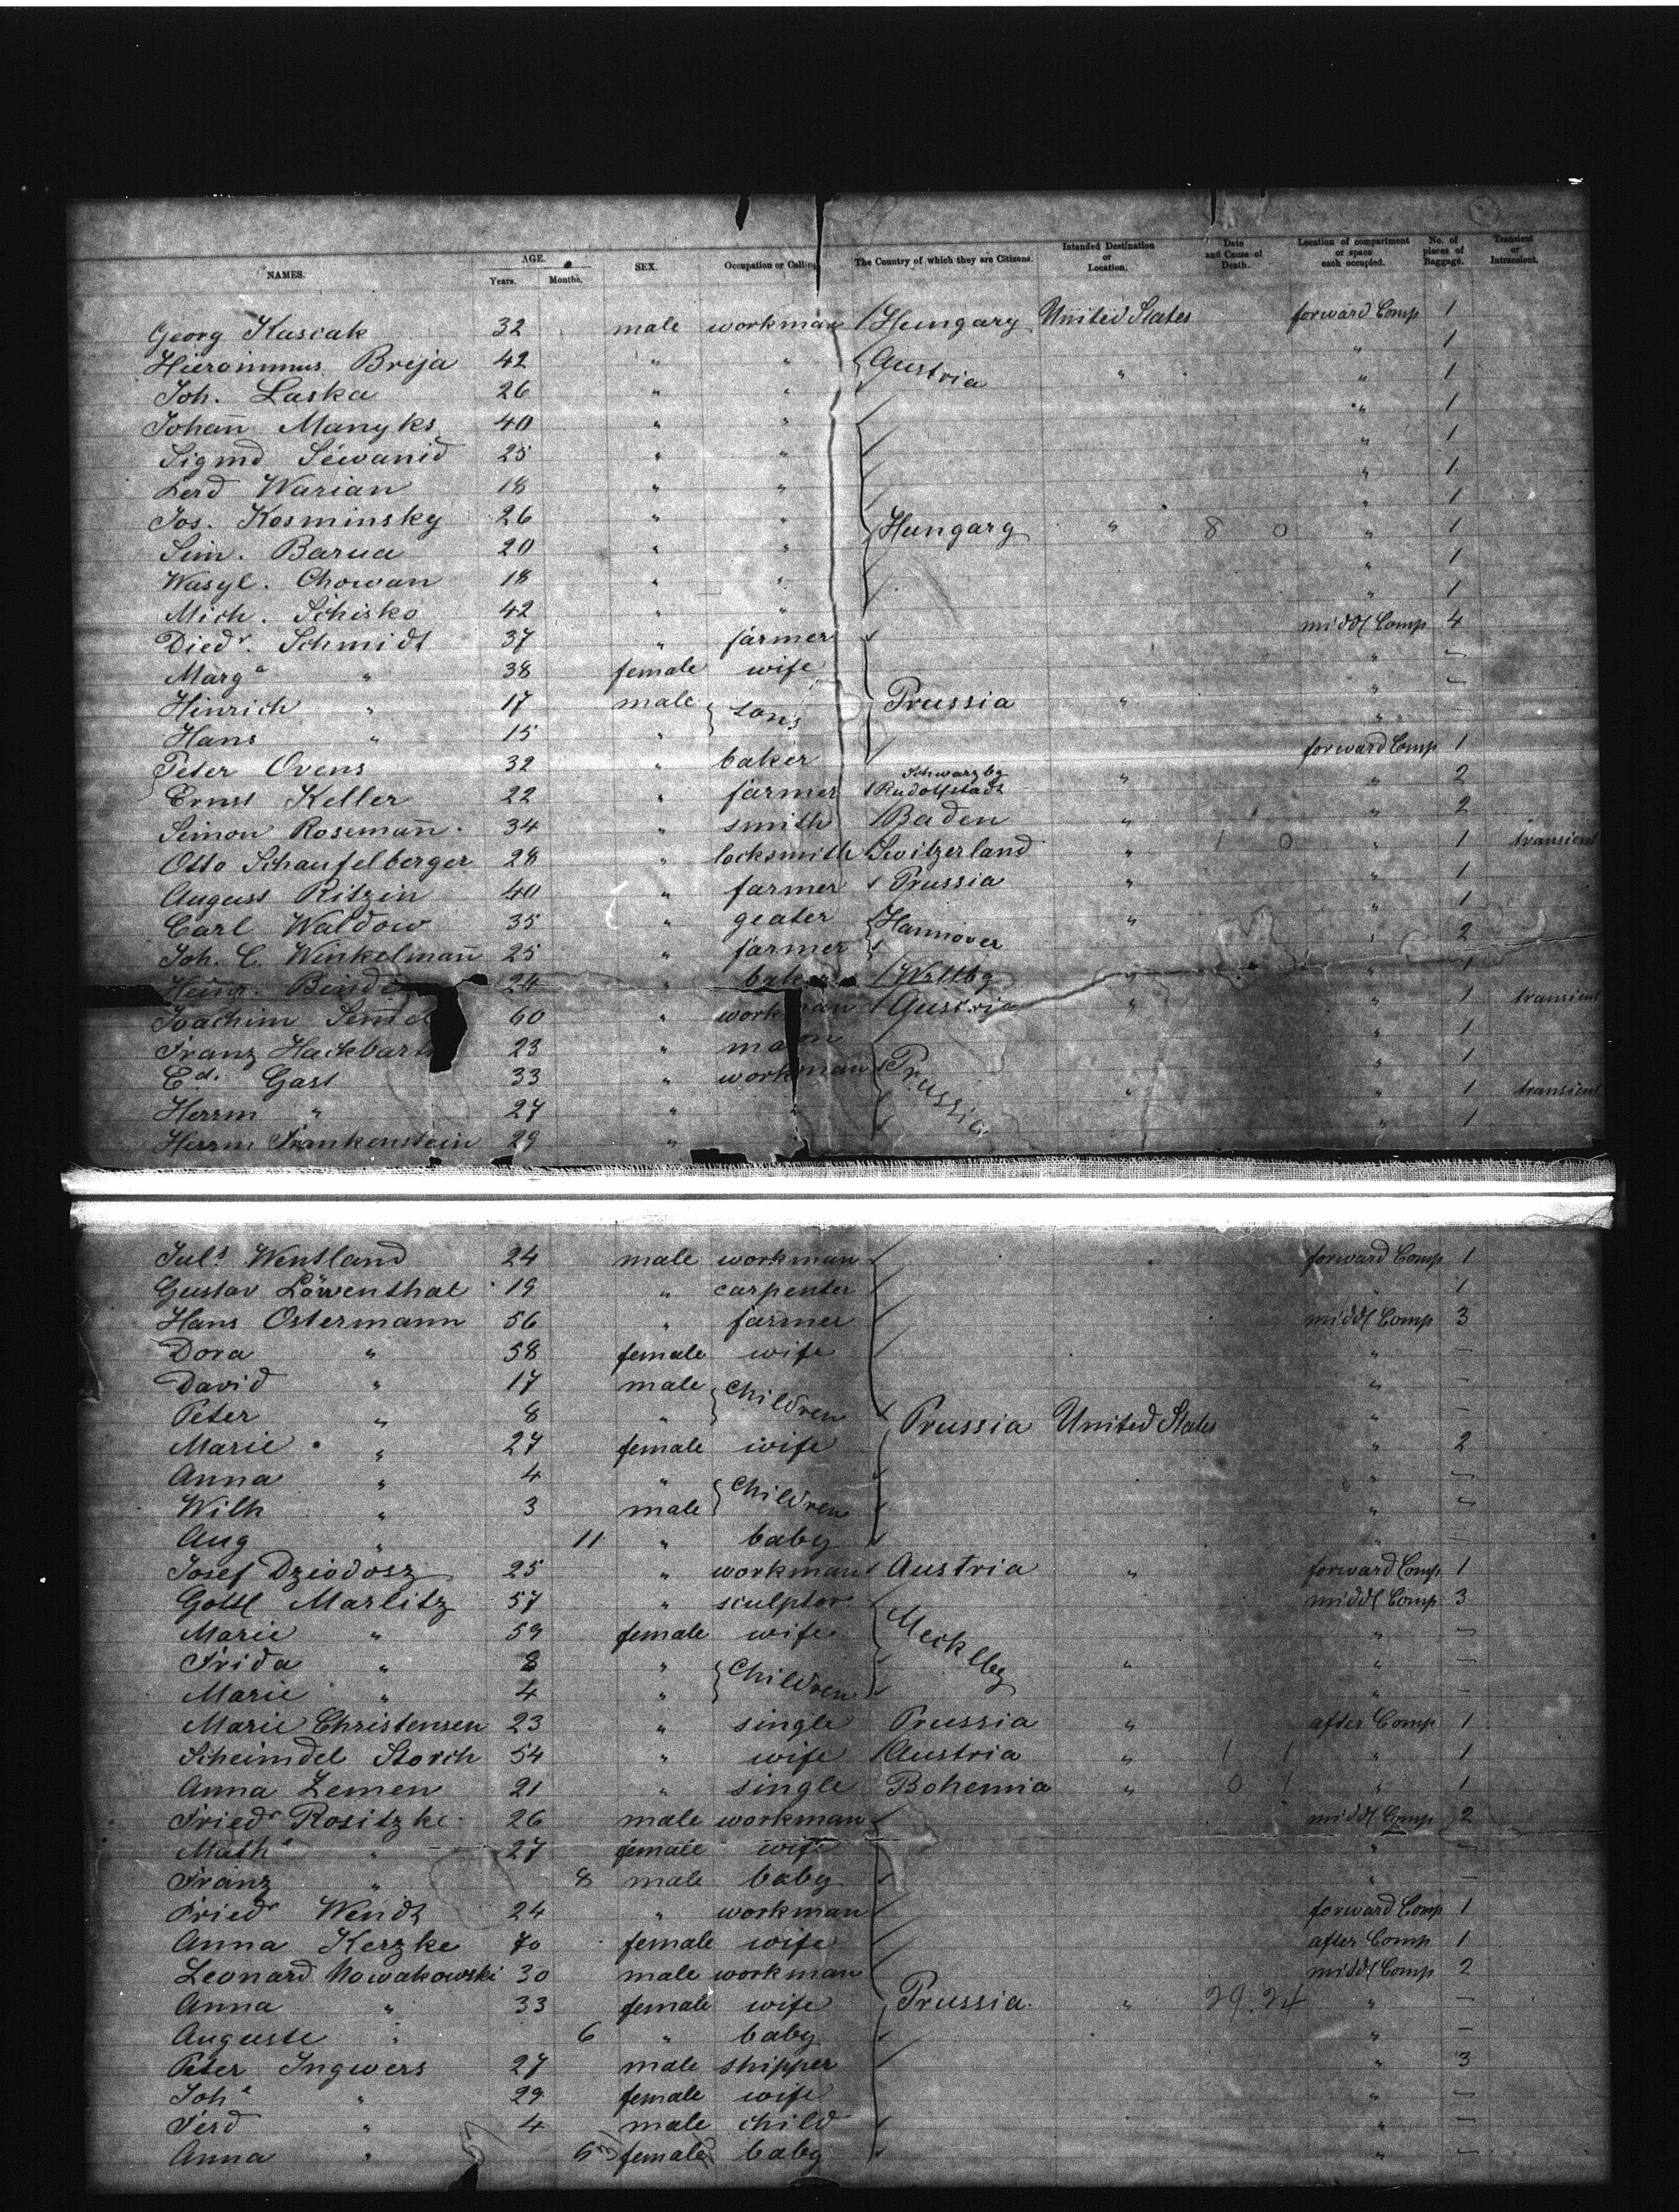 NAMES. AGE. Years. Months. SEX. Occupation or Calling The Country of which they are Citizens. Intended Destination or Location. Date and Cause of Death. Location of compartment or space each occupied. No. of pieces of Baggage. Transient or Intransient.
Georg Kusciak 32 male workman Hungary United States forward Comp 1
Hieronimus Breja 42 " " Austria " " 1
Joh. Laska 26 " " " 1
Johan̄ Manyks 40 " " " 1
Sigmd Sewanid 25 " " " 1
Ferd Warian 18 " " " 1
Jos. Kosminsky 26 " " Hungary " 8 0 " 1
Sim. Barua 20 " " " 1
Wasyl. Chowan 18 " " " 1
Mich. Schisko 42 " " " 1
Diedr. Schmidt 37 " farmer middl Comp 4
Marga " 38 female wife " —
Hinrich " 17 male sons Prussia " " —
Hans " 15 " " —
Peter Ovens 32 " baker forward Comp 1
Ernst Keller 22 " farmer Schwarzbg Rudolfstadt " " 2
Simon Roseman̄ 34 " smith Baden " " 2
Otto Schaufelberger 28 " locksmith Switzerland " 1 0 " 1 transient
August Ritzin 40 " farmer Prussia " " 1
Carl Waldow 35 " geater Hannover " " 1
Joh. C. Winkelman̄ 25 " farmer " 2
Heinr. 24 " baker Wrttbg " " 1
Joachim 60 " workman Austria " " 1 transient
Franz Hackbart 23 " " 1
Ed. Gast 33 " workman Prussia " 1
Herrm " 27 " " " " 1 transient
Herrm Frankenstein 29 " " 1
Juls Wentland 24 male workman forward Comp 1
Gustav Löwenthal 19 " carpenter " 1
Hans Ostermann 56 " farmer middl Comp 3
Dora " 58 female wife " —
David " 17 male children " —
Peter " 8 " Prussia United States " —
Marie " 27 female wife " 2
Anna " 4 " children " —
Wilh " 3 male " —
Aug " 11 " baby " —
Josef Dziodosz 25 " workman Austria " forward Comp 1
Gottl Marlitz 57 " sculptor middl Comp 3
Marie " 59 female wife Mecklbg " —
Frida " 8 " children " " —
Marie " 4 " " —
Marie Christensen 23 " single Prussia " after Comp 1
Scheimdel Storch 54 " wife Austria " 1 1 " 1
Anna Zemen 21 " single Bohemia " 0 1 " 1
Friedr Rositzke 26 male workman middl Comp 2
Matha " 27 female wife " —
Franz " 8 male baby " —
Friedr Wendt 24 " workman forward Comp 1
Anna Kerzke 70 female wife after Comp 1
Leonard Nowakowski 30 male workman middl Comp 2
Anna " 33 female wife Prussia " 29.24 " —
Auguste " 6 " baby " —
Peter Ingwers 27 male shipper " 3
Joha " 29 female wife " —
Ferd " 4 male child " —
Anna " 6 female baby " —